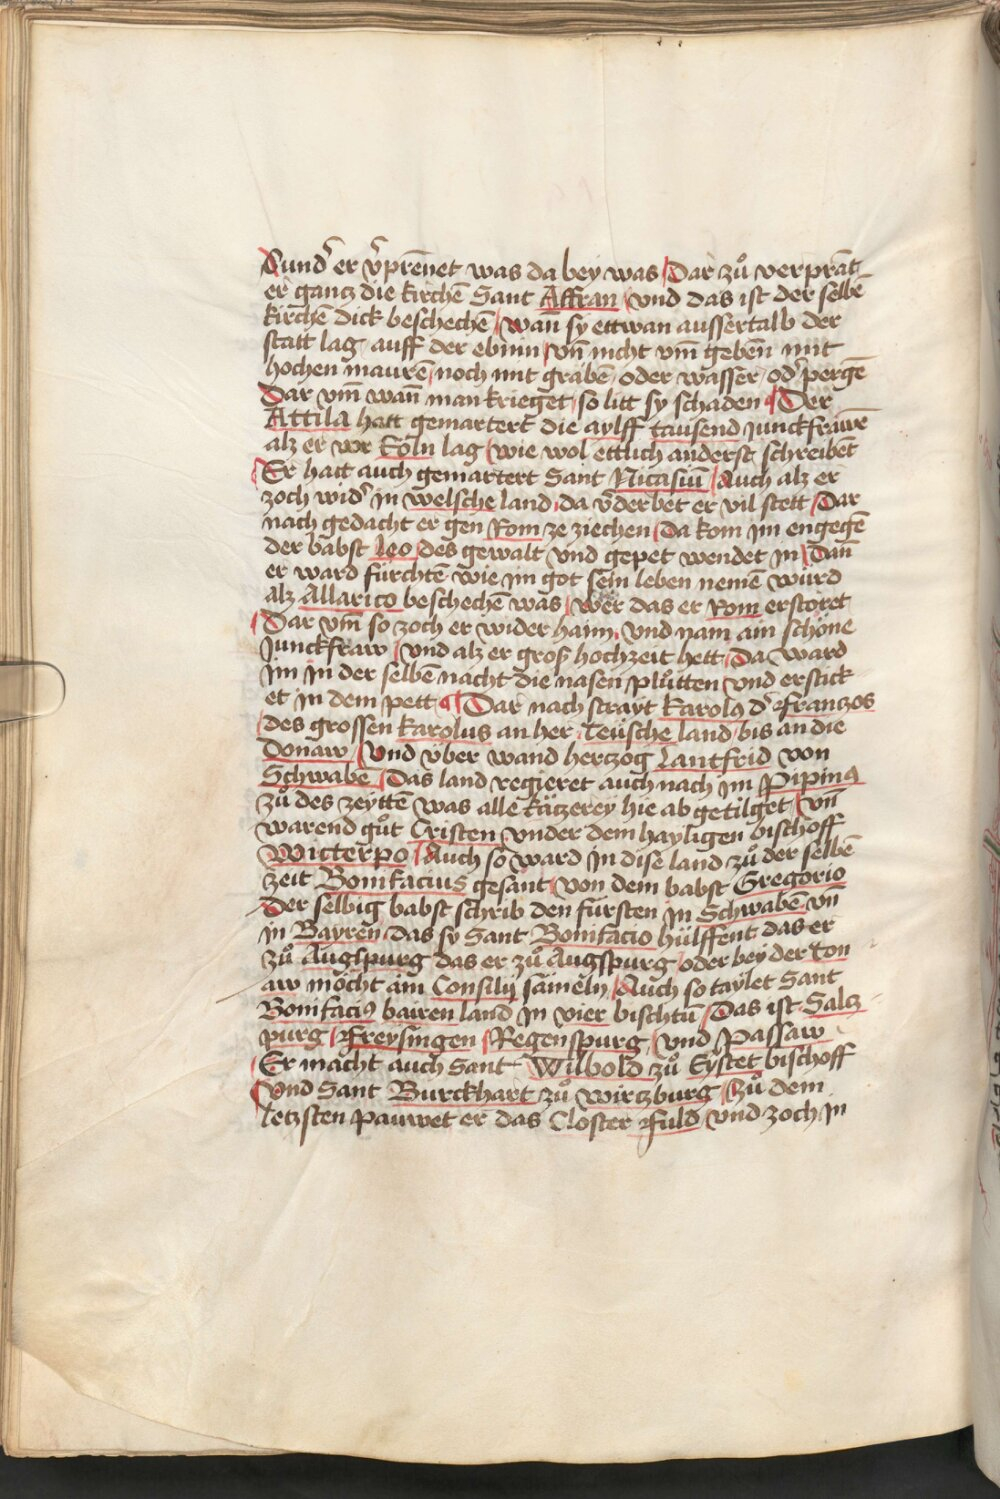 Sund͛ er v͛prēnet was da bey was Dar zů verprāt
er gantz die kirchē Sant Affran vnd das ist der selbē
kirchē dick beschechē wan̄ sy ettwan aussertalb der
statt lag auff der ebinn vn̄ nicht vm̄ gebēn mit
hochen maurē noch mit graben oder wasser od͛ pergē
Dar vm̄ wan̄ man krieget so litt sy schaden Der
Attila hatt gemartert die aylff tausend junckfrawē
alz er vor Köln lag wie wol ettlich anderst schreibēt
Er hatt auch gemartert Sant Nicasiū Auch alz er
zoch wid͛ in welsche land da v͛derbet er vil stett Dar
nach gedacht er gen Rom ze ziechen Da kom jm engegē
der babst Leo des gewalt vnd gepet wendet in Dan̄
er ward fürchtē wie jm got sein leben nemē würd
alz Allarico beschechē was wer das er Rom erstöret
Dar vm̄ so zoch er wider haim vnd nam ain schöne
junckfraw vnd alz er groß hochzeit hett Da ward
jm jn der selbē nacht die nasen plůtten vnd erstick
et in dem pett Dar nach strayt Karolꝰ d͛ Franczos
des grossen Karolus an her Teüsche land bis an die
Donaw Vnd v̈ber wand hertzog Lantfrid von
Schwabē Das land regieret auch nach jm Pipinꝰ
zů des zeyttē was alle kätzerey hie ab getilget vn̄
warend gůt Cristen vnder dem hayligen bischoff
Witterpo Auch so ward jn dise land zů der selbē
zeit Bonifacius gesant von dem babst Gregorio
Der selbig babst schrib den fürsten jn Schwabēn vn̄
in Bayren das sy Sant Bonifacio hülffent das er
zů Augspurg das er zů Augspurg oder bey der Ton
aw möcht ain Consilij sāmeln Auch so taylet Sant
Bonifaciꝰ bairen land jn vier bischtū Das ist Saltz
purg Freysingen Regenspurg vnd Passaw
Er macht auch Sant Wilbold zů Eystet bischoff
Vnd Sant Burckhart zů wirtzburg Zů dem
letzsten pauwet er das Closter Fuld vnd zoch jn